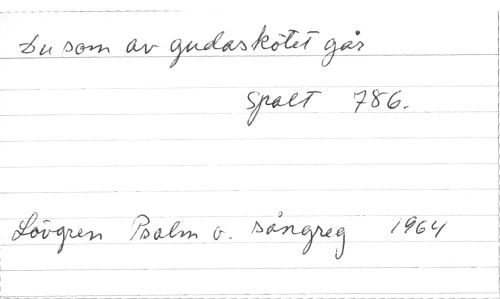 Du som av gudaskötet går
Spalt 786.
Lövgren Psalm o. sångreg 1964